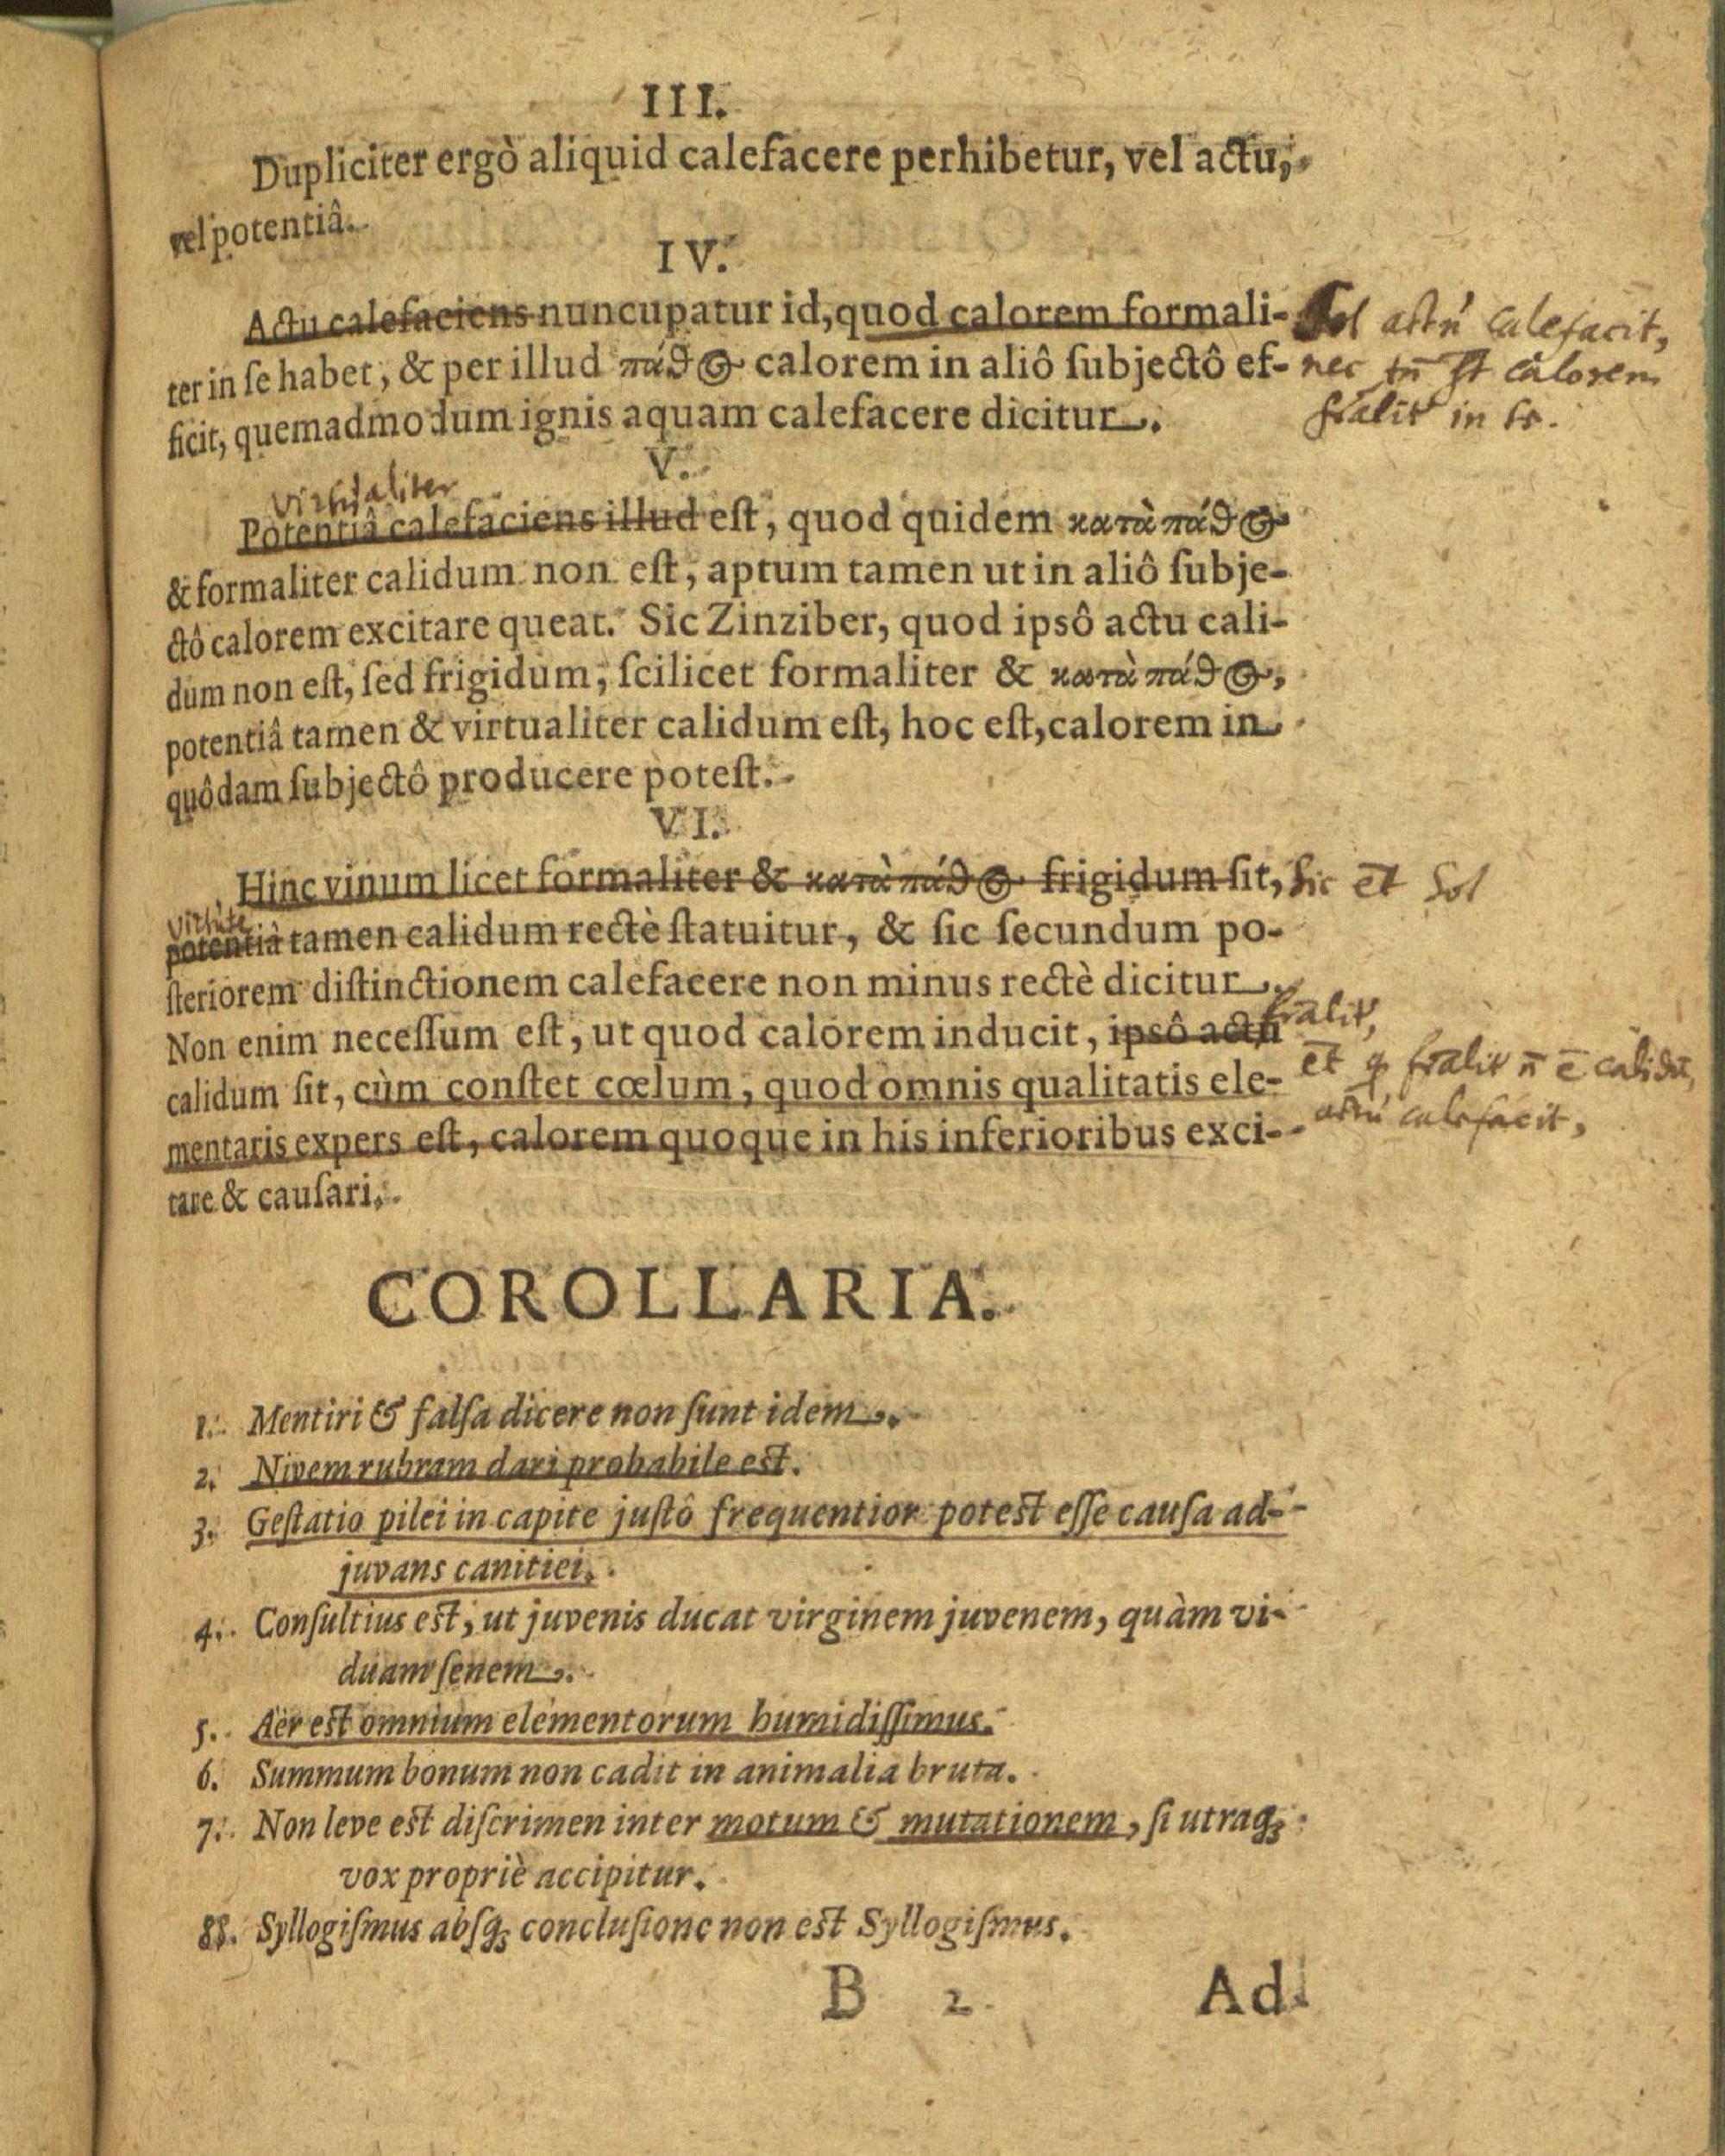 III.
Dupliciter ergò aliquid calefacere perhibetur, vel actu,
vel potentiâ.
IV.
Actu calefaciens nuncupatur id, quod calorem formali- Sol actu calefacit,
ter in ſe habet, & per illud πάθος calorem in aliô ſubjectô ef- nec tn̄ calorem
ficit, quemadmodum ignis aquam calefacere dicitur. in se.
V.
Virtualiter
Potentiâ calefaciens illud eſt, quod quidem κατὰ πάθος
& formaliter calidum non eſt, aptum tamen ut in aliô ſubje-
ctô calorem excitare queat. Sic Zinziber, quod ipsô actu cali-
dum non eſt, ſed frigidum, ſcilicet formaliter & κατὰ πάθος,
potentiâ tamen & virtualiter calidum eſt, hoc eſt, calorem in
quôdam ſubjectô producere poteſt.
VI.
Hinc vinum licet formaliter & κατὰ πάθος frigidum ſit, sic et Sol
virtute
potentiâ tamen calidum rectè ſtatuitur, & ſic ſecundum po-
ſteriorem diſtinctionem calefacere non minus rectè dicitur.
Non enim neceſſum eſt, ut quod calorem inducit, ipsô actu
calidum ſit, cùm conſtet cœlum, quod omnis qualitatis ele- et calidū,
mentaris expers eſt, calorem quoque in his inferioribus exci- actu calefacit,
tare & cauſari.
COROLLARIA.
1. Mentiri & falſa dicere non ſunt idem.
2. Nivem rubram dari probabile est.
3. Geſtatio pilei in capite juſtô frequentior potest eſſe cauſa ad-
juvans canitiei.
4. Conſultius est, ut juvenis ducat virginem juvenem, quàm vi-
duam ſenem.
5. Aër est omnium elementorum humidiſſimus.
6. Summum bonum non cadit in animalia bruta.
7. Non leve est diſcrimen inter motum & mutationem, ſi utraq;
vox propriè accipitur.
8. Syllogiſmus abſq; concluſione non est Syllogiſmus.
B 2 Ad